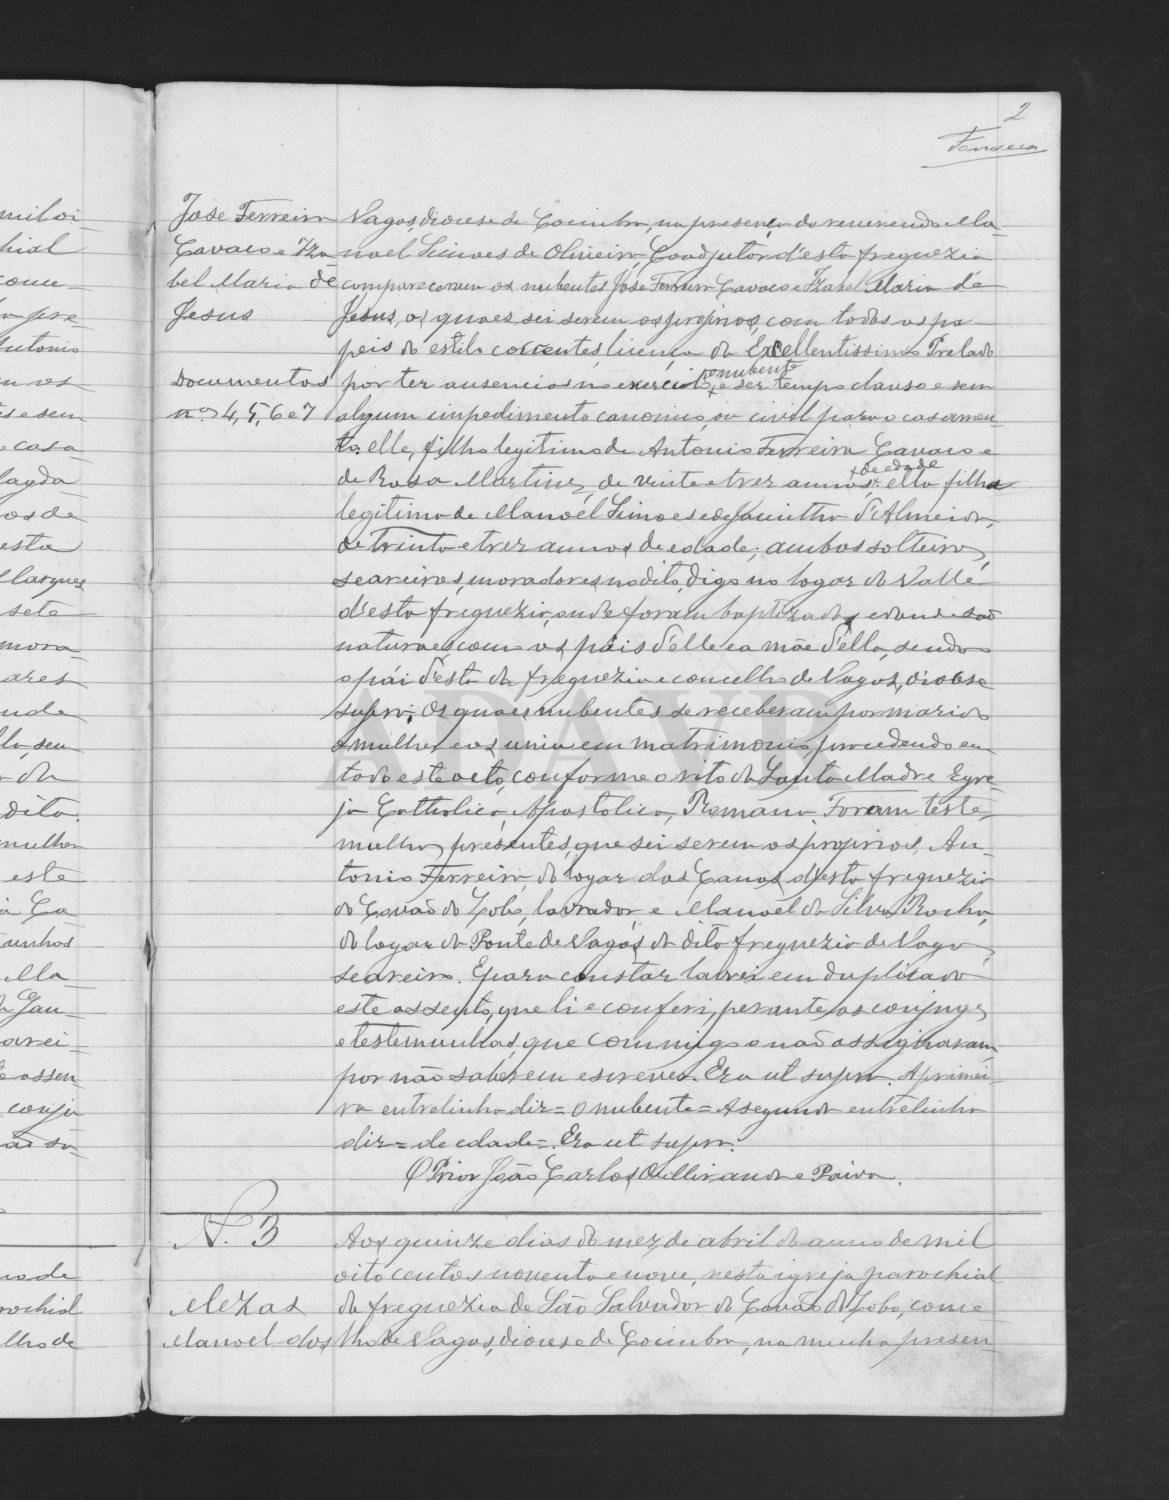 2
Fonseca
José Ferreira
Cavaco e Iza
bel Maria de
Jesus
Documentos
n.os 4, 5, 6 e 7
Vagos, diocese de Coimbra, na presença do reverendo Ma-
noel Simoes de Oliveira, Coadjutor d'esta freguezia
compareceram os nubentes José Ferreira Cavaco e Izabel Maria de
Jesus, os quaes sei serem os proprios, com todos os pa-
peis do estilo correntes, licença do Excellentissimo Prelado
por ter ausencias no exercito + o nubente e ser tempo clauso e sem
algum impedimento canonico, ou civil para o casamen-
to: elle, filho legitimo de Antonio Ferreira Cavaco e
de Rosa Martins, de vinte e trez annos + de edade; ella filha
legitima de Manoel Simoes e de Jacintha d'Almeida,
de trinta e trez annos de edade; ambos solteiros,
seareiros, moradores no dito, digo no logar do Valle
d'esta freguezia, onde foram baptizados, e donde são
naturaes com os páis d'elle e a mãe d'ella, sendo
o pái d'esta da freguezia e concelho de Vagos, diocese
supra; Os quaes nubentes se receberam por marido
e mulher e os uniu em matrimonio, procedendo em
todo este acto, conforme o rito da Santa Madre Egre-
ja Catholica, Apostolica, Romana. Foram teste-
munhas presentes, que sei serem os proprios, An-
tonio Ferreira, do logar das Canas d'esta freguezia
do Covão do Lobo, lavrador, e Manoel da Silva Rocha,
do logar da Ponte de Vagos da dita freguezia de Vagos,
seareiro. E para constar lavrei em duplicado
este assento, que li e conferi, perante os conjuges
e testemunhas, que commigo o não assignaram,
por não saberem escrever. Era ut supra. A primei-
ra entrelinha diz = o nubente = A segunda entrelinha
diz = de edade =. Era ut supra.
O Prior João Carlos de Miranda e Paiva.
N. 3
Mezas
Manoel dos
Aos quinze dias do mez de abril do anno de mil
oito centos noventa e nove, nesta igreja parochial
da freguezia de São Salvador do Covão do Lobo, conce-
lho de Vagos, diocese de Coimbra, na minha presen-